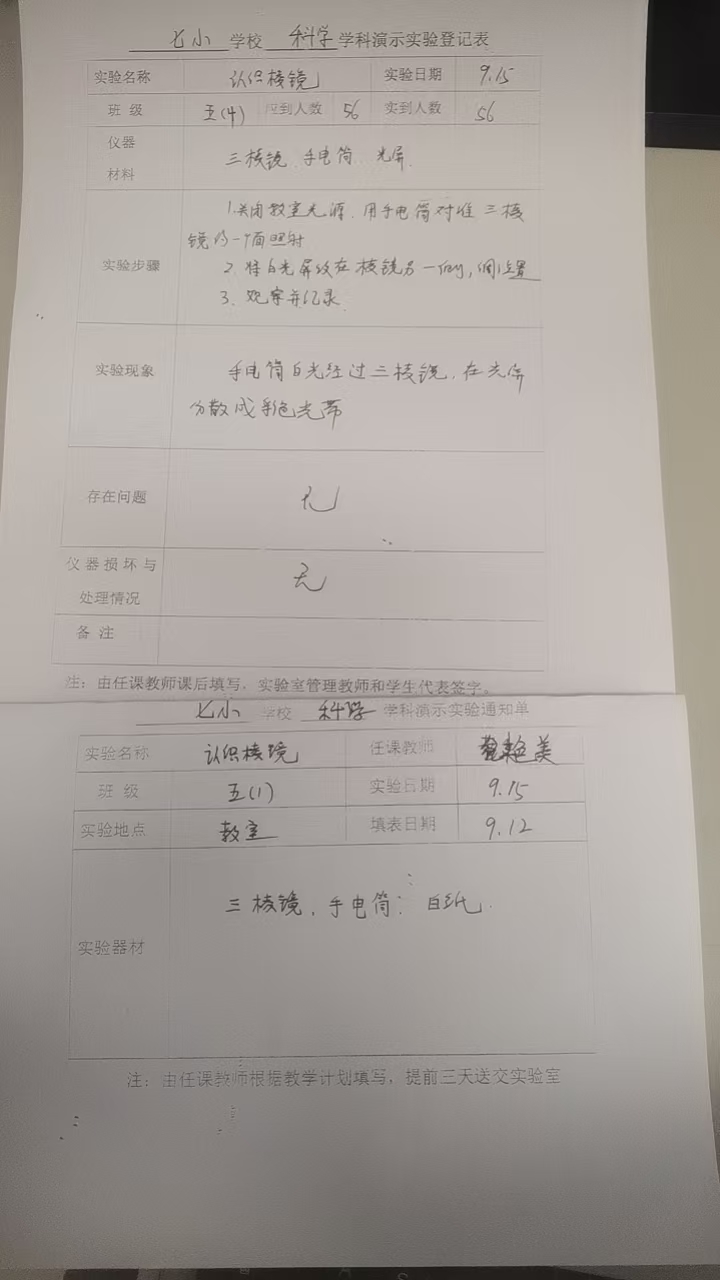 七小 学校 科学 学科演示实验登记表
实验名称 认识棱镜 实验日期 9.15
班 级 五(4) 应到人数 56 实到人数 56
仪器
材料
三棱镜 手电筒 光屏.
实验步骤
1.关闭教室光源,用手电筒对准三棱
镜的一个面照射
2. 将白光屏放在棱镜另一侧,
3. 观察并记录.
实验现象
手电筒白光经过三棱镜,在光屏
分散成彩色光带
存在问题 无
仪器损坏与
处理情况
无
备 注
注:由任课教师课后填写,实验室管理教师和学生代表签字。
七小 学校 科学 学科演示实验通知单
实验名称 认识棱镜 任课教师 艳美
班 级 五(1) 实验日期 9.15
实验地点 教室 填表日期 9.12
实验器材 三棱镜,手电筒 白纸.
注:由任课教师根据教学计划填写,提前三天送交实验室